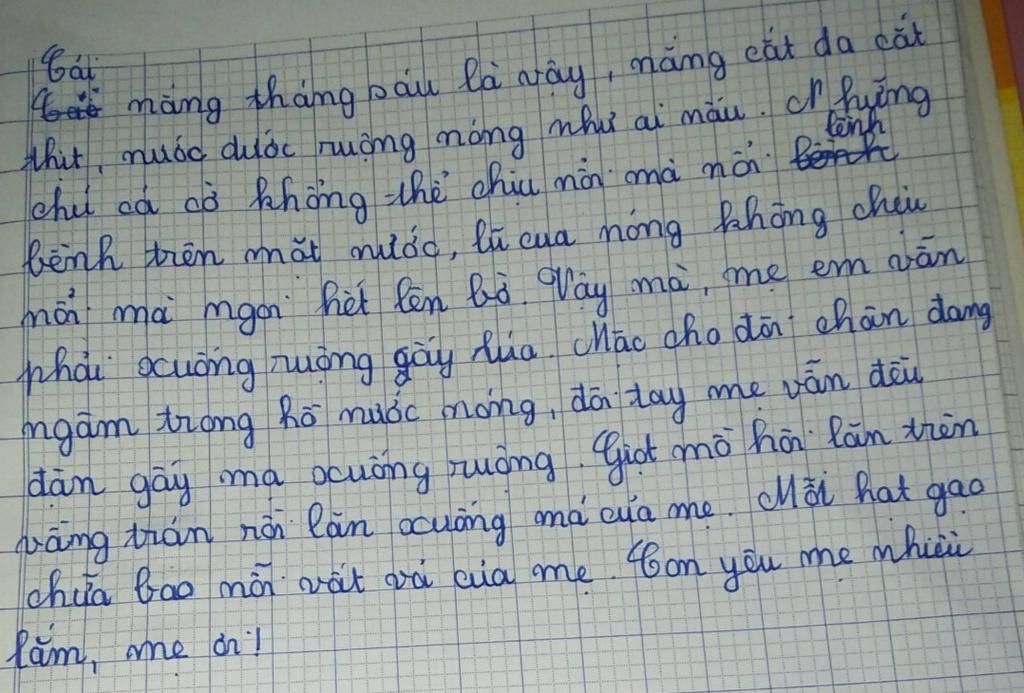 Cái
nắng tháng sáu là vậy, nắng cắt da cắt
thịt, nước dưới ruộng nóng như ai nấu. Những
chú cá cờ không thể chịu nổi mà nổi lềnh
bềnh trên mặt nước, lũ cua nóng không chịu
nổi mà ngoi hết lên bờ. Vậy mà, mẹ em vẫn
phải xuống ruộng gấy lúa. Mặc cho đôi chân đang
ngâm trong hồ nước nóng, đôi tay mẹ vẫn đều
đặn gấy mạ xuống ruộng. Giọt mồ hôi lăn trên
vầng trán rồi lăn xuống má của mẹ. Mỗi hạt gạo
chứa bao nỗi vất vả của mẹ. Con yêu mẹ nhiều
lắm, mẹ ơi!